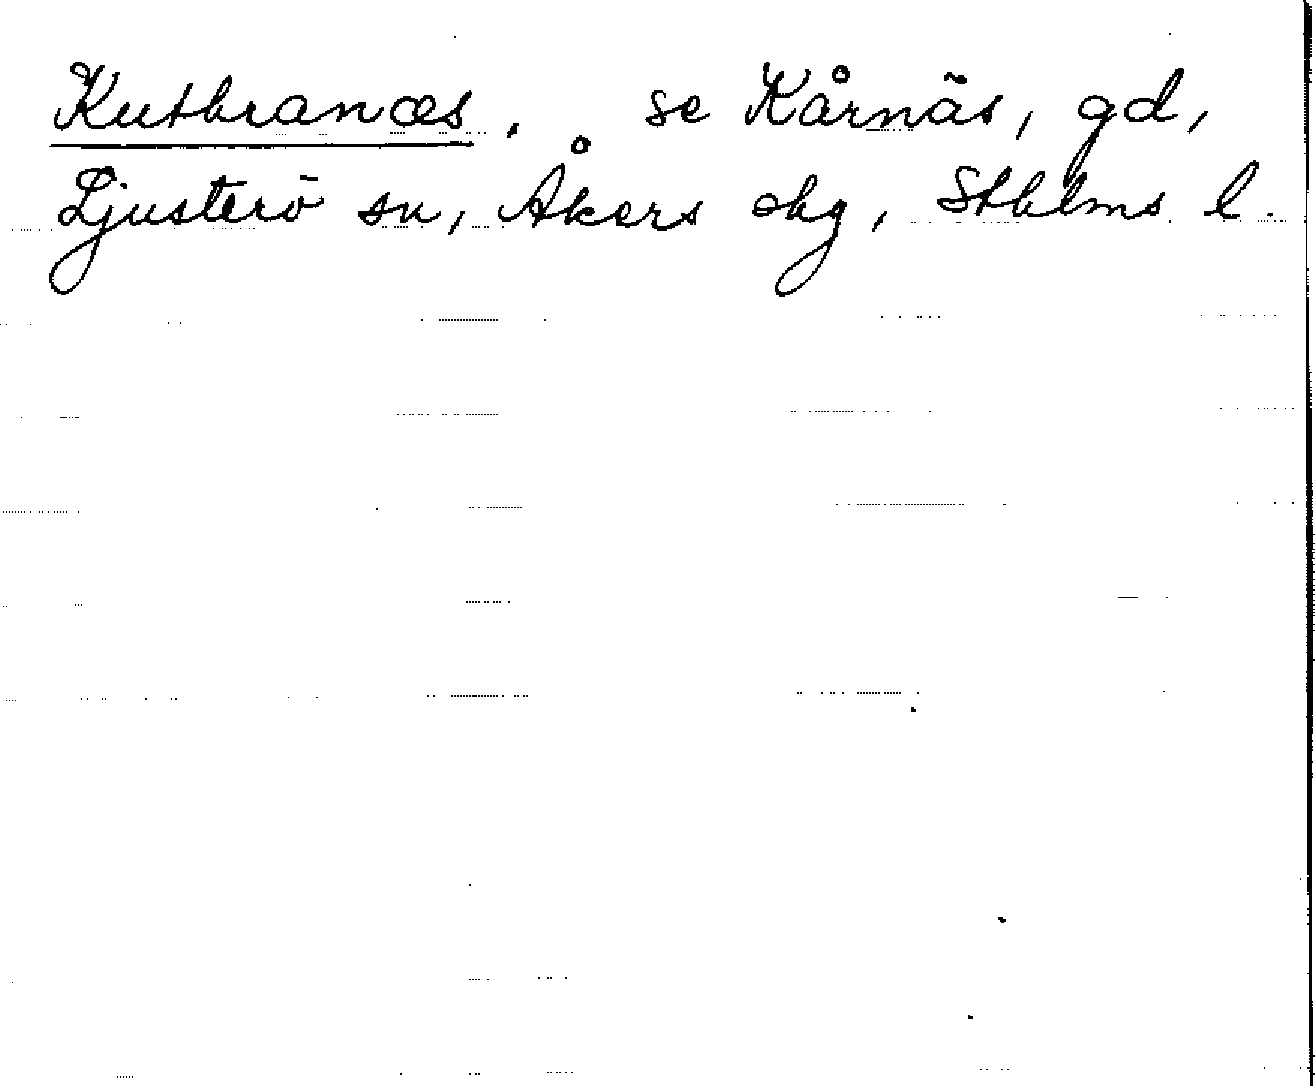 Kutbranæs. se Kårnäs, gd,
Ljusterö sn, Åkers skg, Sthlms l.